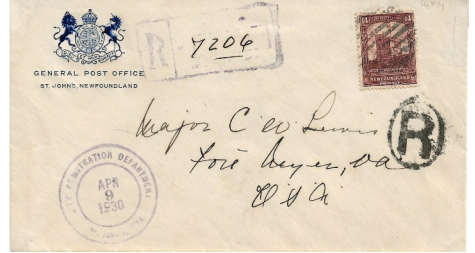 GENERAL POST OFFICE
ST. JOHNS, NEWFOUNDLAND
R
7206
14 14
NEWFOUNDLAND
Major C W Lewis
Fort Meyer, Va
U S A
R
REGISTRATION DEPARTMENT
APR
9
1930